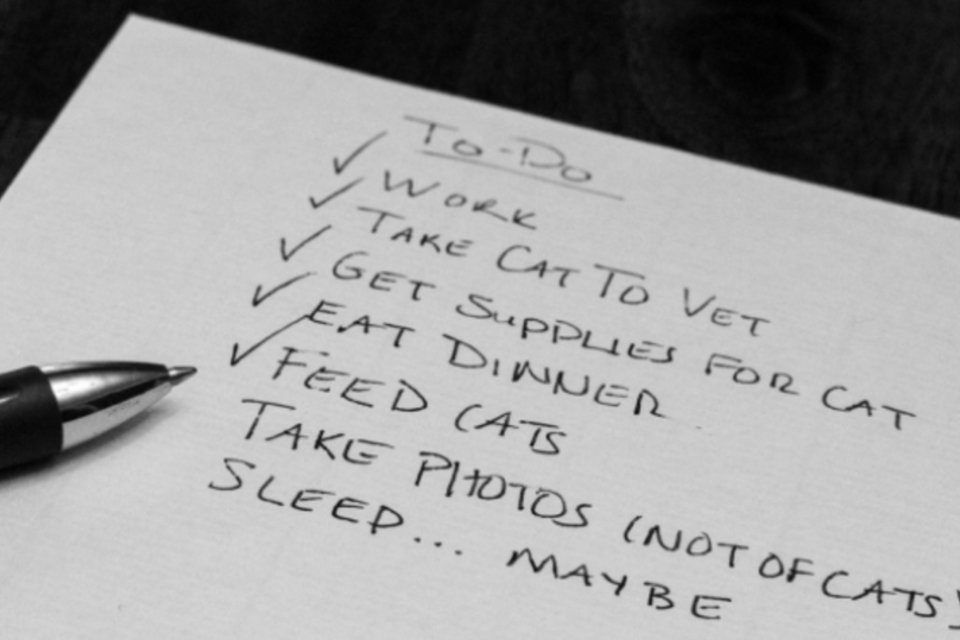 To-Do
✓ WORK
✓ TAKE CAT TO VET
✓ GET SUPPLIES FOR CAT
✓ EAT DINNER
✓ FEED CATS
TAKE PHOTOS (NOT OF CATS)
SLEEP... MAYBE